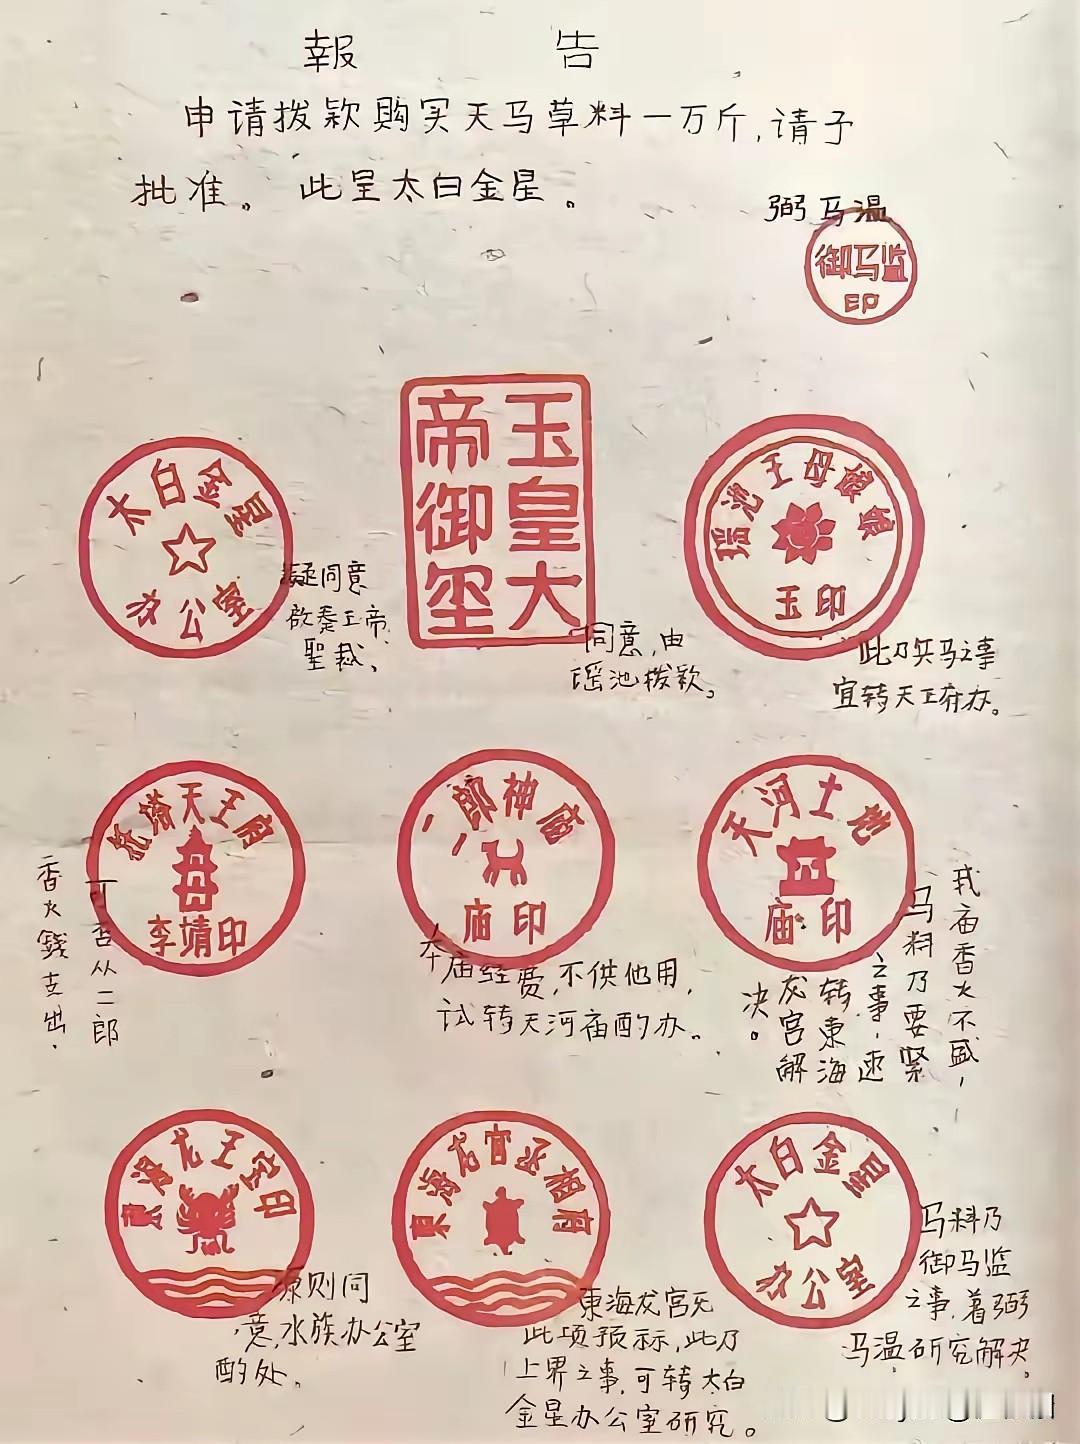 報 告
申请拨款购买天马草料一万斤,请予
批准。 此呈太白金星。
弼马温
御马监
印
太白金星
办公室
凝同意
啟奏玉帝
聖裁、
玉皇大
帝御玺
同意,由
瑶池拨款。
瑶池王母娘娘
玉印
此乃兵马之事
宜转天王府办。
托塔天王府
李靖印
可否从二郎
香火錢支出.
二郎神庙
庙印
本庙经费,不供他用,
试转天河庙酌办。
天河土地
庙印
我庙香火不盛,
马料乃要紧
之事,速
转東海
龙宫解
决。
東海龙王宝印
原则同
意,水族办公室
酌处、
東海龙宫丞相府
東海龙宫无
此项预标,此乃
上界之事,可转太白
金星办公室研究。
太白金星
办公室
马料乃
御马监
之事,着弼
马温研究解决。